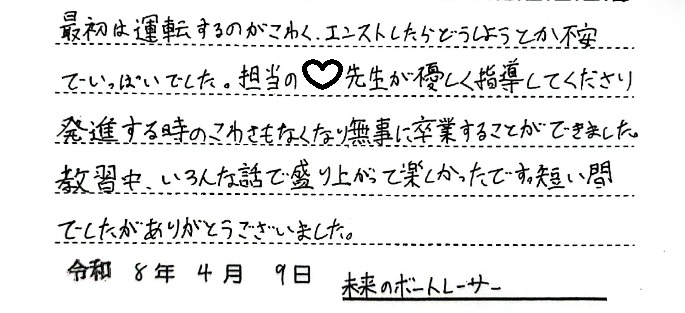 最初は運転するのがこわく、エンストしたらどうしようとか不安
でいっぱいでした。担当の♡先生が優しく指導してくださり
発進する時のこわさもなくなり無事に卒業することができました。
教習中、いろんな話で盛り上がって楽しかったです。短い間
でしたがありがとうございました。
令和 8年 4月 9日 未来のボートレーサー